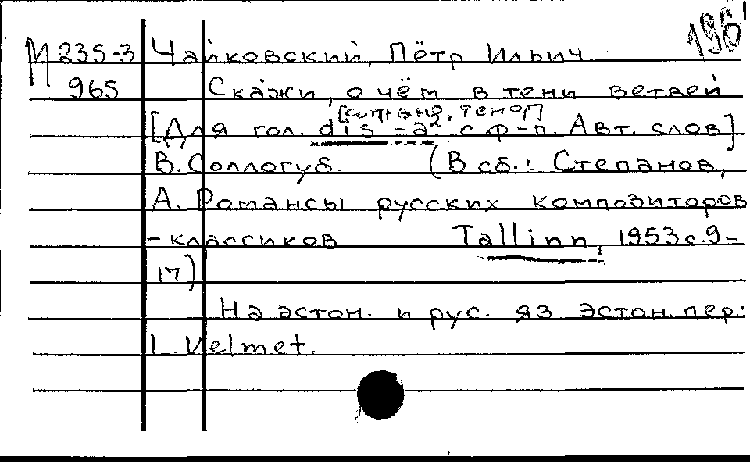 196
М 235-3 Чайковский, Пётр Ильич
965 Скажи, о чём в тени ветвей
[сопрано, тенор]
[Для гол. dis - a² с ф-п. Авт. слов]
В. Соллогуб. (В сб.: Степанов,
А. Романсы русских композиторов
-классиков Tallinn, 1953 с. 9-
17)
На эстон. и рус. яз Эстон. пер:
L. Velmet.